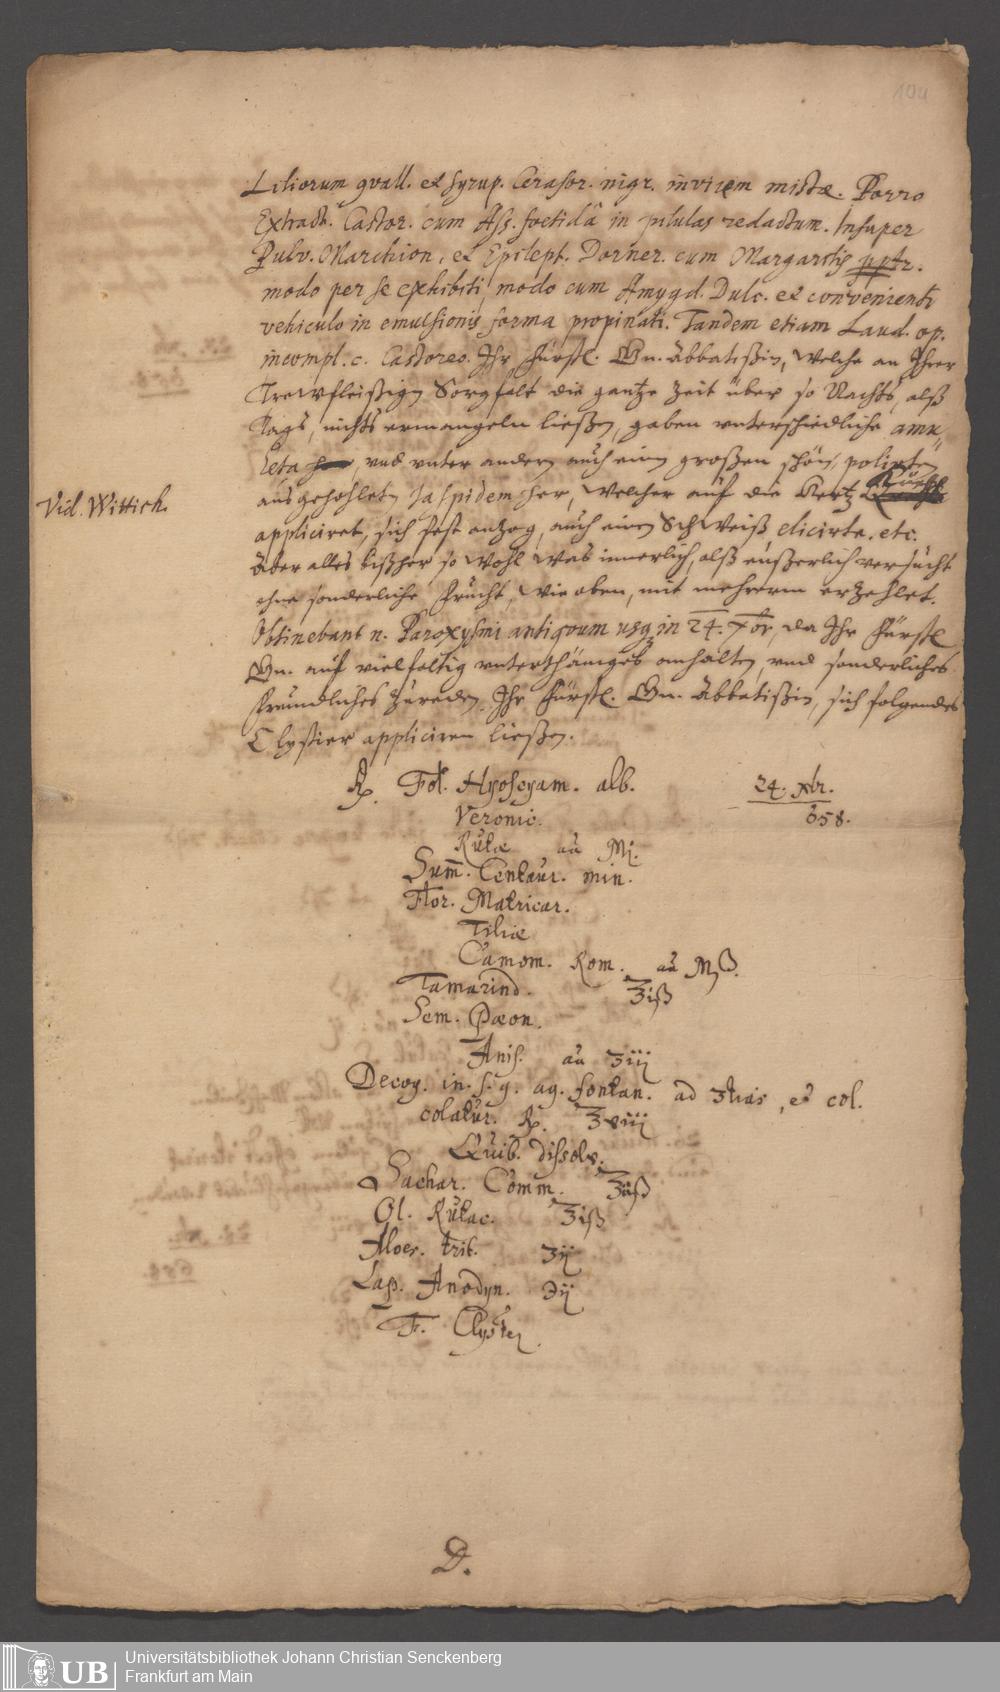 104
Liliorum qvall. et syrup. Cerasor. nigr. invicem mistæ. Porro
Extract. Castor. cum Ass. foetidâ in pilulas redactum. Insuper
Pulv. Marchion. et Epilept. Dorner. cum Margaritis pptr.
modo per se exhibiti, modo cum Amygd. Dulc. et convenienti
vehiculo in emulsionis forma propinati. Tandem etiam Laud. op.
incompl. c. Castoreo. Ihr Fürstl. Gn. Äbbatißin, welche an Ihrer
Trewfleißigen Sorgfalt die gantze Zeit über so Nachts, alß
Tags, nichts ermangeln ließen, gaben unterschiedliche amu„
leta her, und unter andern auch einen großen schön, polirten
Vid. Wittich.
ausgehohleten Jaspidem her, welcher auf die Hertz Grueb
appliciret, sich fest anzog, auch einen Schweiß elicirte. etc.
Aber alles bißher, so wohl was innerlich, alß eußerlich versucht
ohne sonderliche Frucht, wie oben, mit mehrerm erzehlet.
Obtinebant n. Paroxysmi antiqvum usq. in 24. Xbr, da Ihr Fürstl
Gn. auf vielfaltig unterthäniges anhalten, und sonderliches
freundliches Zureden, Ihr Fürstl. Gn. Äbbatißin, sich folgendes
Clystier appliciren ließen.
Rp. Fol. Hyoscyam. alb.
24. Xbr.
658.
Veronic.
Rutæ aa Mj.
Sum̄. Centaur. min.
Flor. Matricar.
Tiliæ
Camom. Rom. aa Mß.
Tamarind. ℥iß
Sem. Pæon.
Anis. aa ʒiij
Decoq. in. s. q. aq. fontan. ad 3tias, et col.
colatur. Rp. ℥viij
Quib. dissolv.
Sachar. Comm. ℥iiß
Ol. Rutac. ℥iß
Aloes. trit. ʒij
Lap. Anodyn. ℈ij
F. Clyster
D.
UB
Universitätsbibliothek Johann Christian Senckenberg
Frankfurt am Main